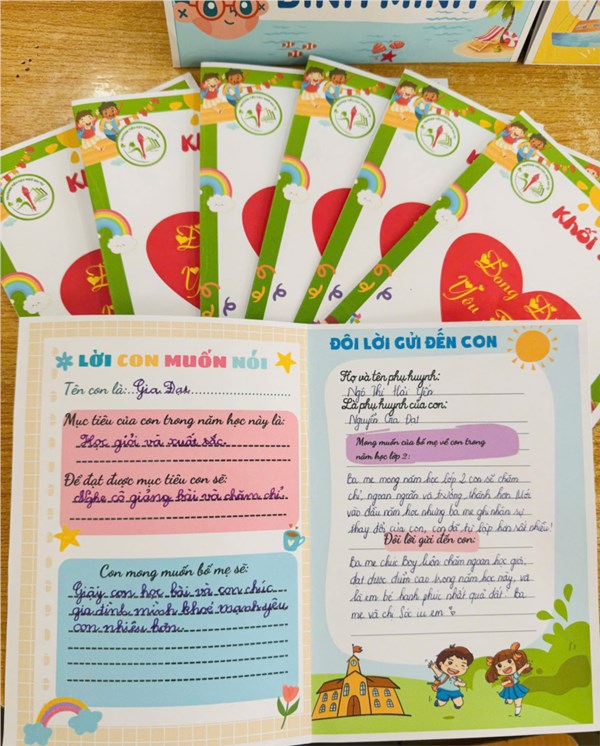 BÌNH MINH
Khối
Đong
Yêu
LỜI CON MUỐN NÓI
Tên con là: Gia Đạt
Mục tiêu của con trong năm học này là:
Học giỏi và xuất sắc.
Để đạt được mục tiêu con sẽ:
Nghe cô giảng bài và chăm chỉ.
Con mong muốn bố mẹ sẽ:
Giạy con học bài và con chúc
gia đình mình khoẻ mạnh yêu
con nhiều hơn.
ĐÔI LỜI GỬI ĐẾN CON
Họ và tên phụ huynh:
Ngô Thị Hải Yến
Là phụ huynh của con:
Nguyễn Gia Đạt
Mong muốn của bố mẹ về con trong
năm học lớp 2:
Ba mẹ mong năm học lớp 2 con sẽ chăm
chỉ, ngoan ngoãn và trưởng thành hơn. Mới
vào đầu năm học nhưng ba mẹ ghi nhận sự
thay đổi của con, con đã tự lập hơn rất nhiều!
Đôi lời gửi đến con:
Ba mẹ chúc Boy luôn chăm ngoan học giỏi,
đạt được điểm cao trong năm học này, và
là em bé hạnh phúc nhất quả đất! Ba
mẹ và chị Sóc iu em